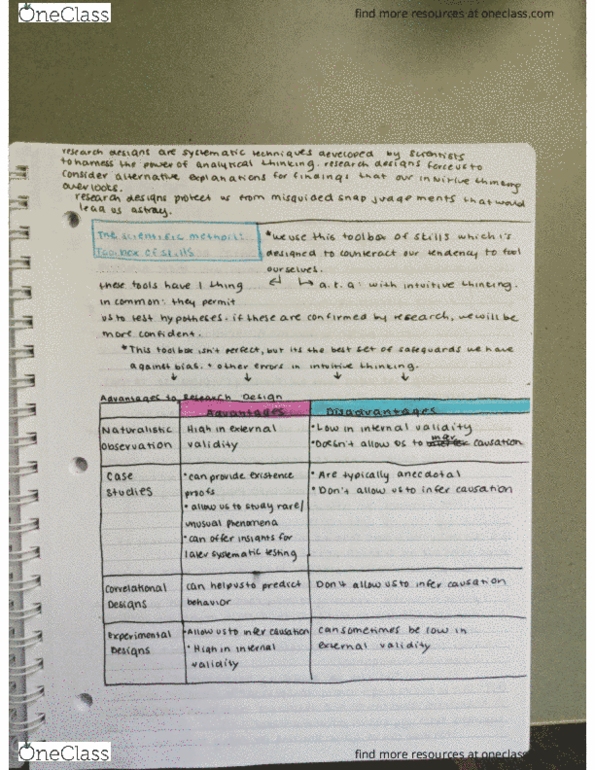 OneClass
find more resources at oneclass.com
research designs are systematic techniques developed by scientists
to harness the power of analytical thinking. research designs force us to
consider alternative explanations for findings that our intuitive thinking
overlooks.
research designs protect us from misguided snap judgements that would
lead us astray.
The scientific method:
Toolbox of skills
*we use this toolbox of skills which is
designed to counteract our tendency to fool
ourselves.
these tools have 1 thing
↳ a.t.a: with intuitive thinking.
in common: they permit
us to test hypotheses. if these are confirmed by research, we will be
more confident.
*This toolbox isn't perfect, but its the best set of safeguards we have
against bias. + other errors in intuitive thinking.
Advantages to Research Design
Advantages
Disadvantages
Naturalistic
Observation
High in external
validity
•Low in internal validity
•Doesn't allow us to infer causation
Case
Studies
•can provide existence
proofs
•allow us to study rare/
unusual phenomena
•can offer insights for
later systematic testing
•Are typically anecdotal
•Don't allow us to infer causation
Correlational
Designs
can help us to predict
behavior
Don't allow us to infer causation
Experimental
Designs
•Allow us to infer causation
•High in internal
validity
can sometimes be low in
external validity
OneClass
find more resources at oneclass.com